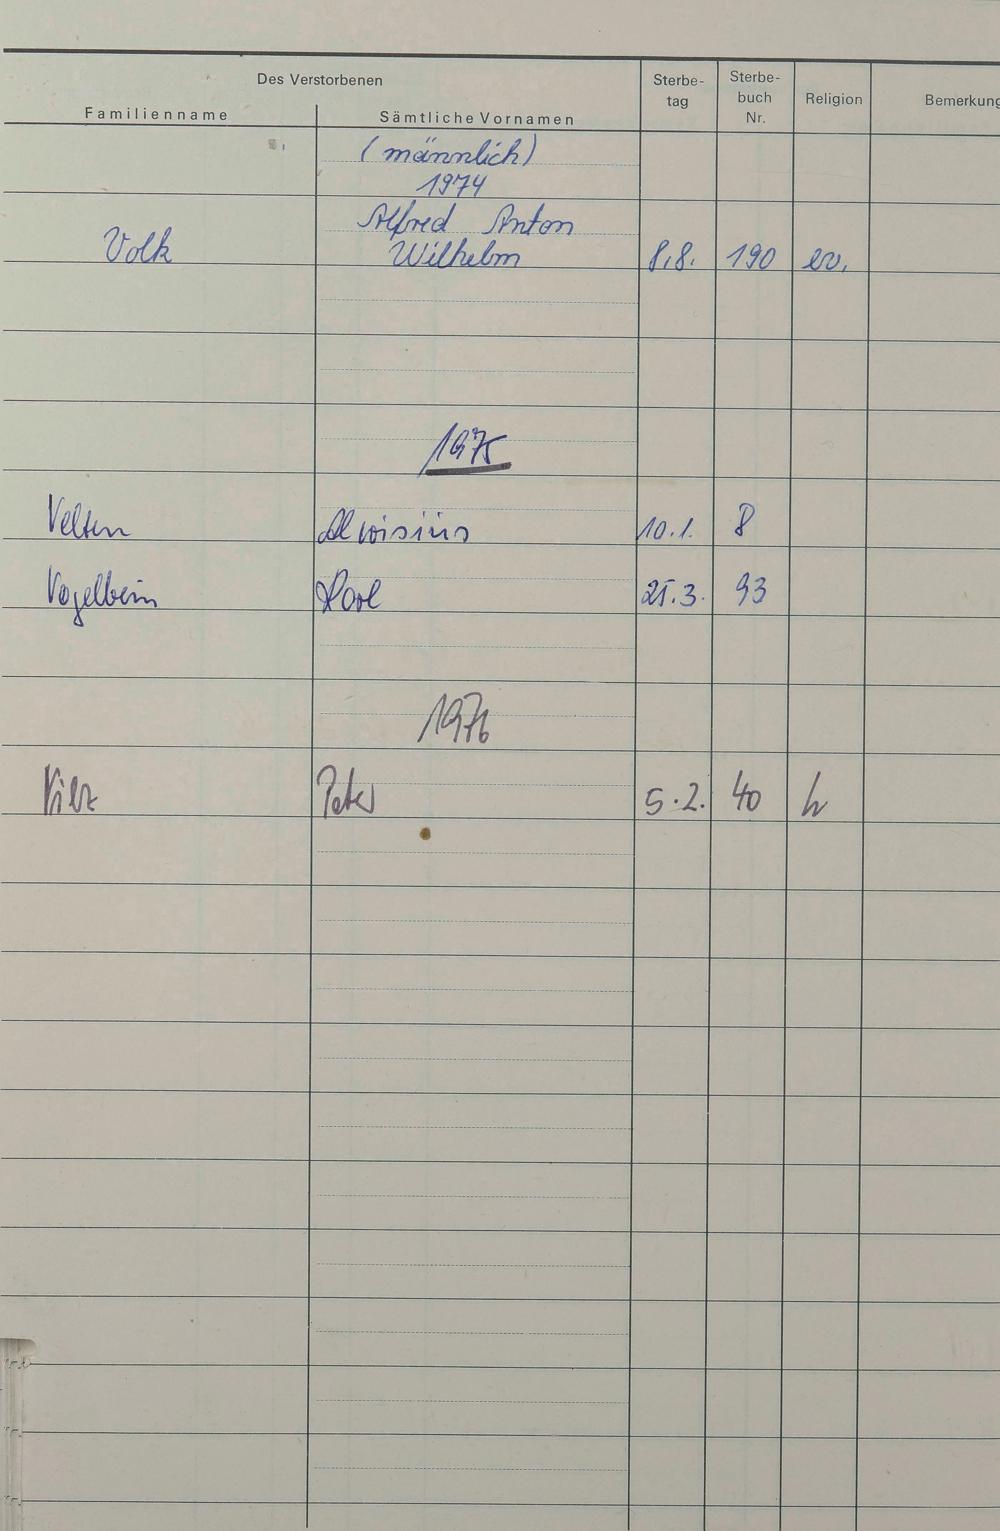 Des Verstorbenen
Familienname Sämtliche Vornamen Sterbe-
tag Sterbe-
buch
Nr. Religion Bemerkung
(männlich)
1974
Alfred Anton
Volk Wilhelm 8.8. 190 ev.
1975
Velten Aloisius 10.1. 8
Vogelbein Karl 25.3. 93
1976
Vilz Peter 5.2. 40